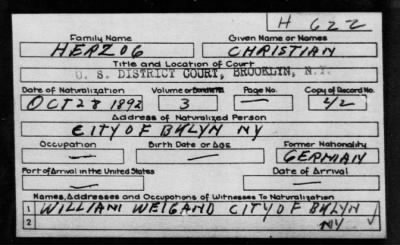 H 622
Family Name Given Name or Names
HERZOG CHRISTIAN
Title and Location of Court
U. S. DISTRICT COURT, BROOKLYN, N.Y.
Date of Naturalization Volume or Bundle No. Page No. Copy of Record No.
OCT 28 1892 3 — 42
Address of Naturalized Person
CITY OF BKLYN NY
Occupation Birth Date or Age Former Nationality
— — GERMAN
Port of Arrival in the United States Date of Arrival
— —
Names, Addresses and Occupations of Witnesses To Naturalization
1 WILLIAM WEIGAND CITY OF BKLYN
2 NY